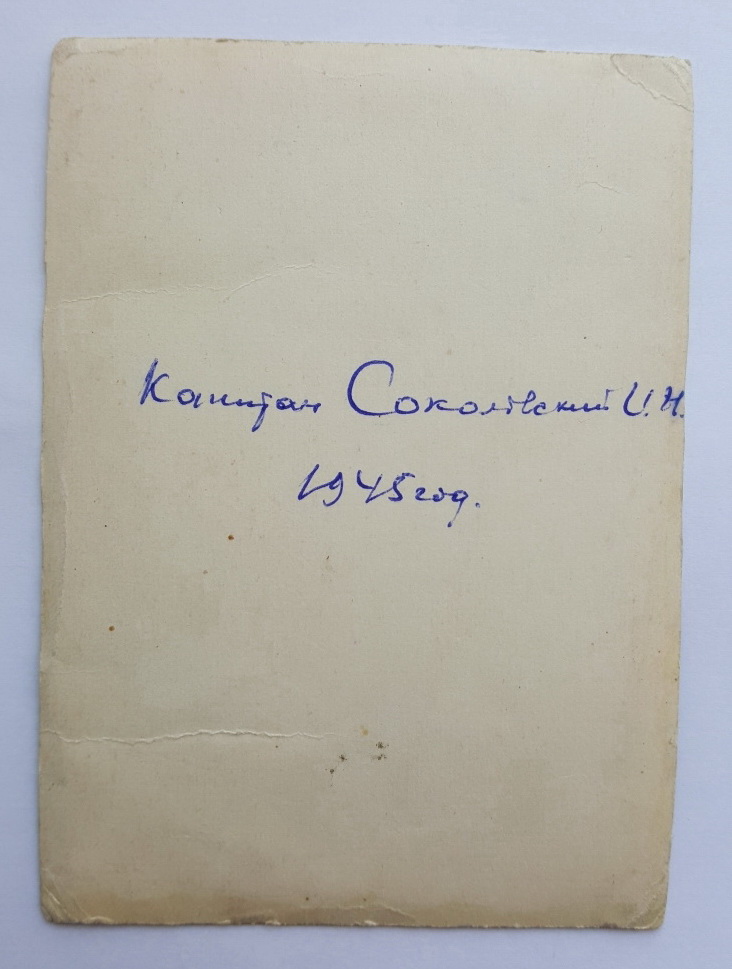 Капитан Соколовский И.Н.
1945 год.